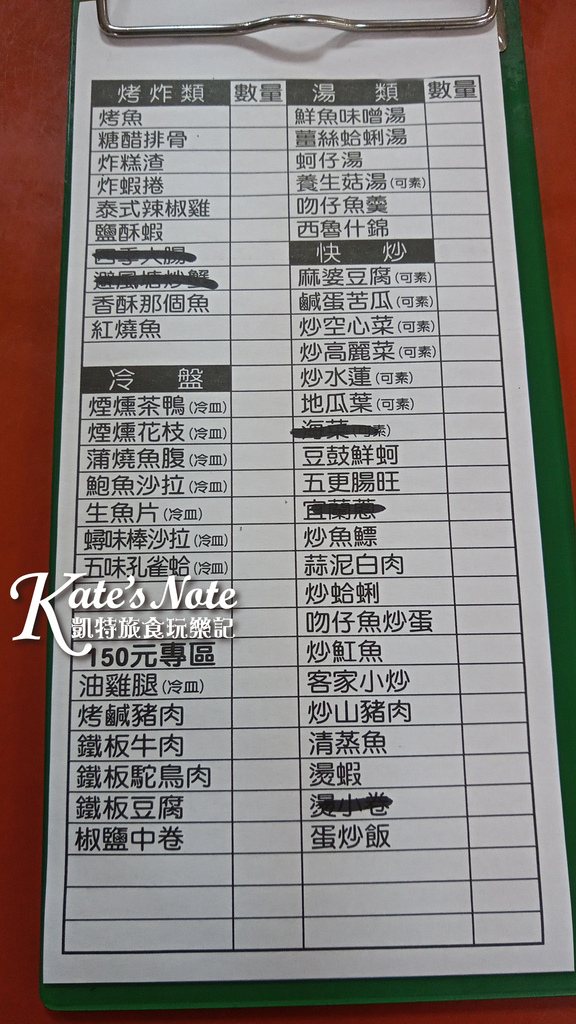 烤炸類 數量
烤魚
糖醋排骨
炸糕渣
炸蝦捲
泰式辣椒雞
鹽酥蝦
避風塘炒蟹
香酥那個魚
紅燒魚
冷 盤
煙燻茶鴨(冷皿)
煙燻花枝(冷皿)
蒲燒魚腹(冷皿)
鮑魚沙拉(冷皿)
生魚片(冷皿)
蟳味棒沙拉(冷皿)
五味孔雀蛤(冷皿)
Kate's Note
凱特旅食玩樂記
150元專區
油雞腿(冷皿)
烤鹹豬肉
鐵板牛肉
鐵板駝鳥肉
鐵板豆腐
椒鹽中卷
湯 類 數量
鮮魚味噌湯
薑絲蛤蜊湯
蚵仔湯
養生菇湯(可素)
吻仔魚羹
西魯什錦
快 炒
麻婆豆腐(可素)
鹹蛋苦瓜(可素)
炒空心菜(可素)
炒高麗菜(可素)
炒水蓮(可素)
地瓜葉(可素)
海菜(可素)
豆鼓鮮蚵
五更腸旺
宜蘭蔥
炒魚鰾
蒜泥白肉
炒蛤蜊
吻仔魚炒蛋
炒魟魚
客家小炒
炒山豬肉
清蒸魚
燙蝦
燙小卷
蛋炒飯